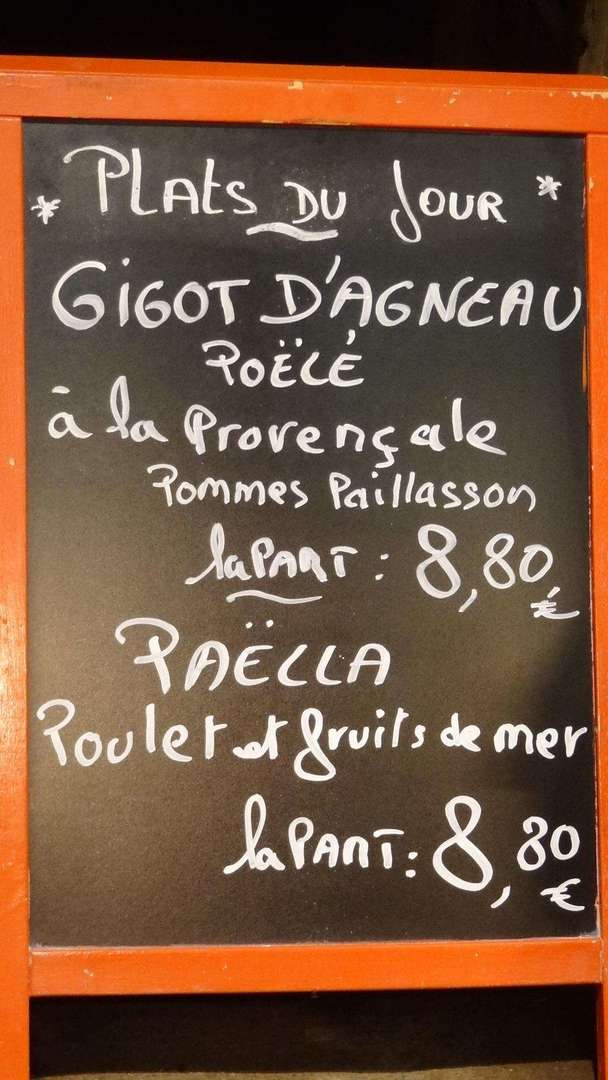 * PLATS DU JOUR *
GIGOT D'AGNEAU
POËLÉ
à la Provençale
Pommes Paillasson
la PART : 8,80 €
PAËLLA
Poulet et fruits de mer
la PART : 8,80 €